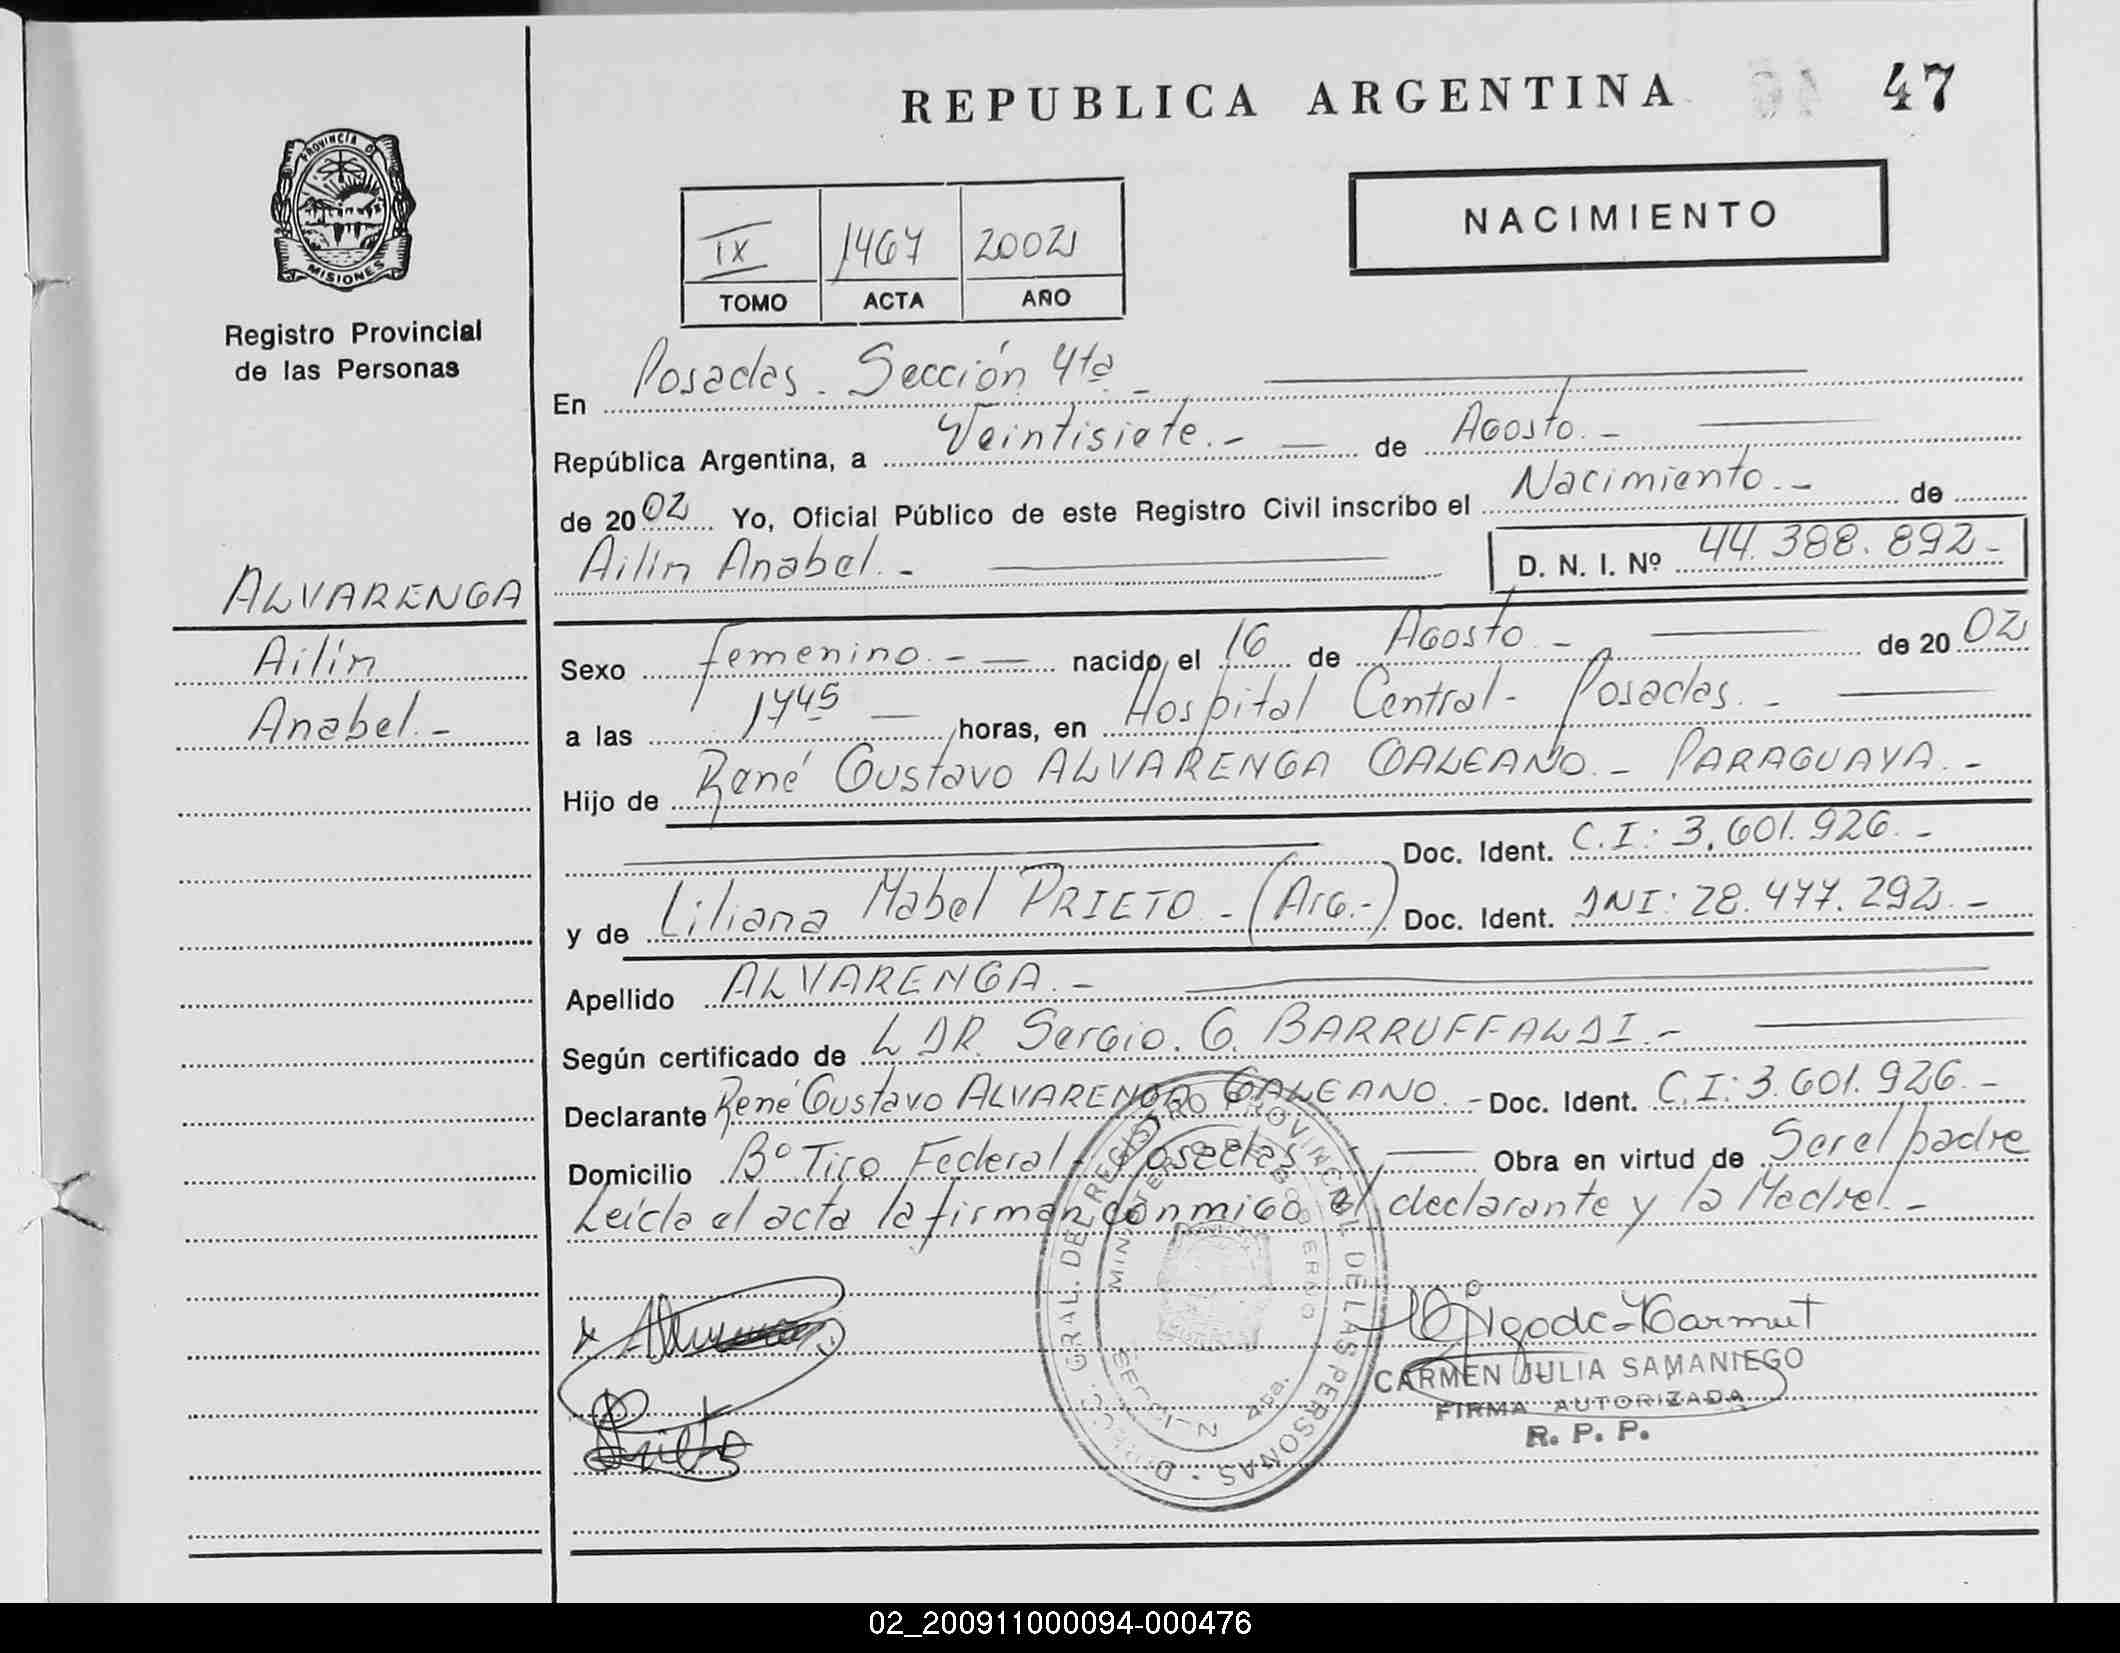 REPUBLICA ARGENTINA
47
PROVINCIA D
MISIONES
Registro Provincial
de las Personas
NACIMIENTO
IX 1467 2002
TOMO ACTA AÑO
En Posadas. Sección 4ta -
República Argentina, a Veintisiete.- — de Agosto.-
de 2002 Yo, Oficial Público de este Registro Civil inscribo el Nacimiento.- de
Ailín Anabel.- D. N. I. Nº 44.388.892-
ALVARENGA
Ailín
Anabel.-
Sexo femenino.- — nacido el 16 de Agosto.- de 2002
a las 1745 — horas, en Hospital Central- Posadas.-
Hijo de René Gustavo ALVARENGA GALEANO.- PARAGUAYA.-
Doc. Ident. C.I: 3.601.926.-
y de Liliana Mabel PRIETO.- (Arg.-) Doc. Ident. DNI: 28.477.292.-
Apellido ALVARENGA.-
Según certificado de L DR. Sergio. G. BARRUFFALDI.-
Declarante René Gustavo ALVARENGA GALEANO.- Doc. Ident. C.I: 3.601.926.-
Domicilio Bº Tiro Federal- Posadas — Obra en virtud de Ser el padre
Leída el acta la firman conmigo el declarante y la Madre.-
DIRECC. GRAL. DEL REGISTRO PROVINCIAL DE LAS PERSONAS
Prieto
CARMEN JULIA SAMANIEGO
FIRMA AUTORIZADA
R. P. P.
02_200911000094-000476